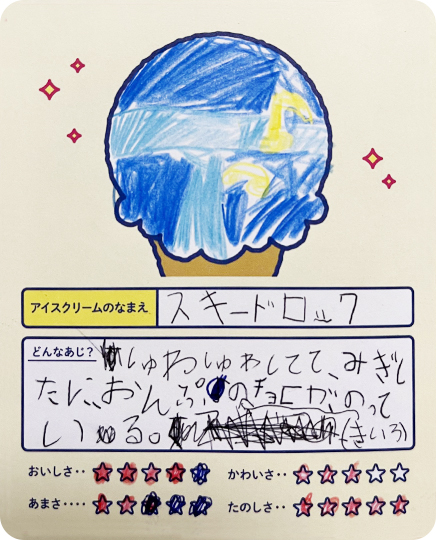 アイスクリームのなまえ
スキードロック
どんなあじ?
しゅわしゅわしてて、みぎし
たに、おんぷのチョコが、のって
いる。(きいろ)
おいしさ‥
かわいさ‥
あまさ‥‥
たのしさ‥